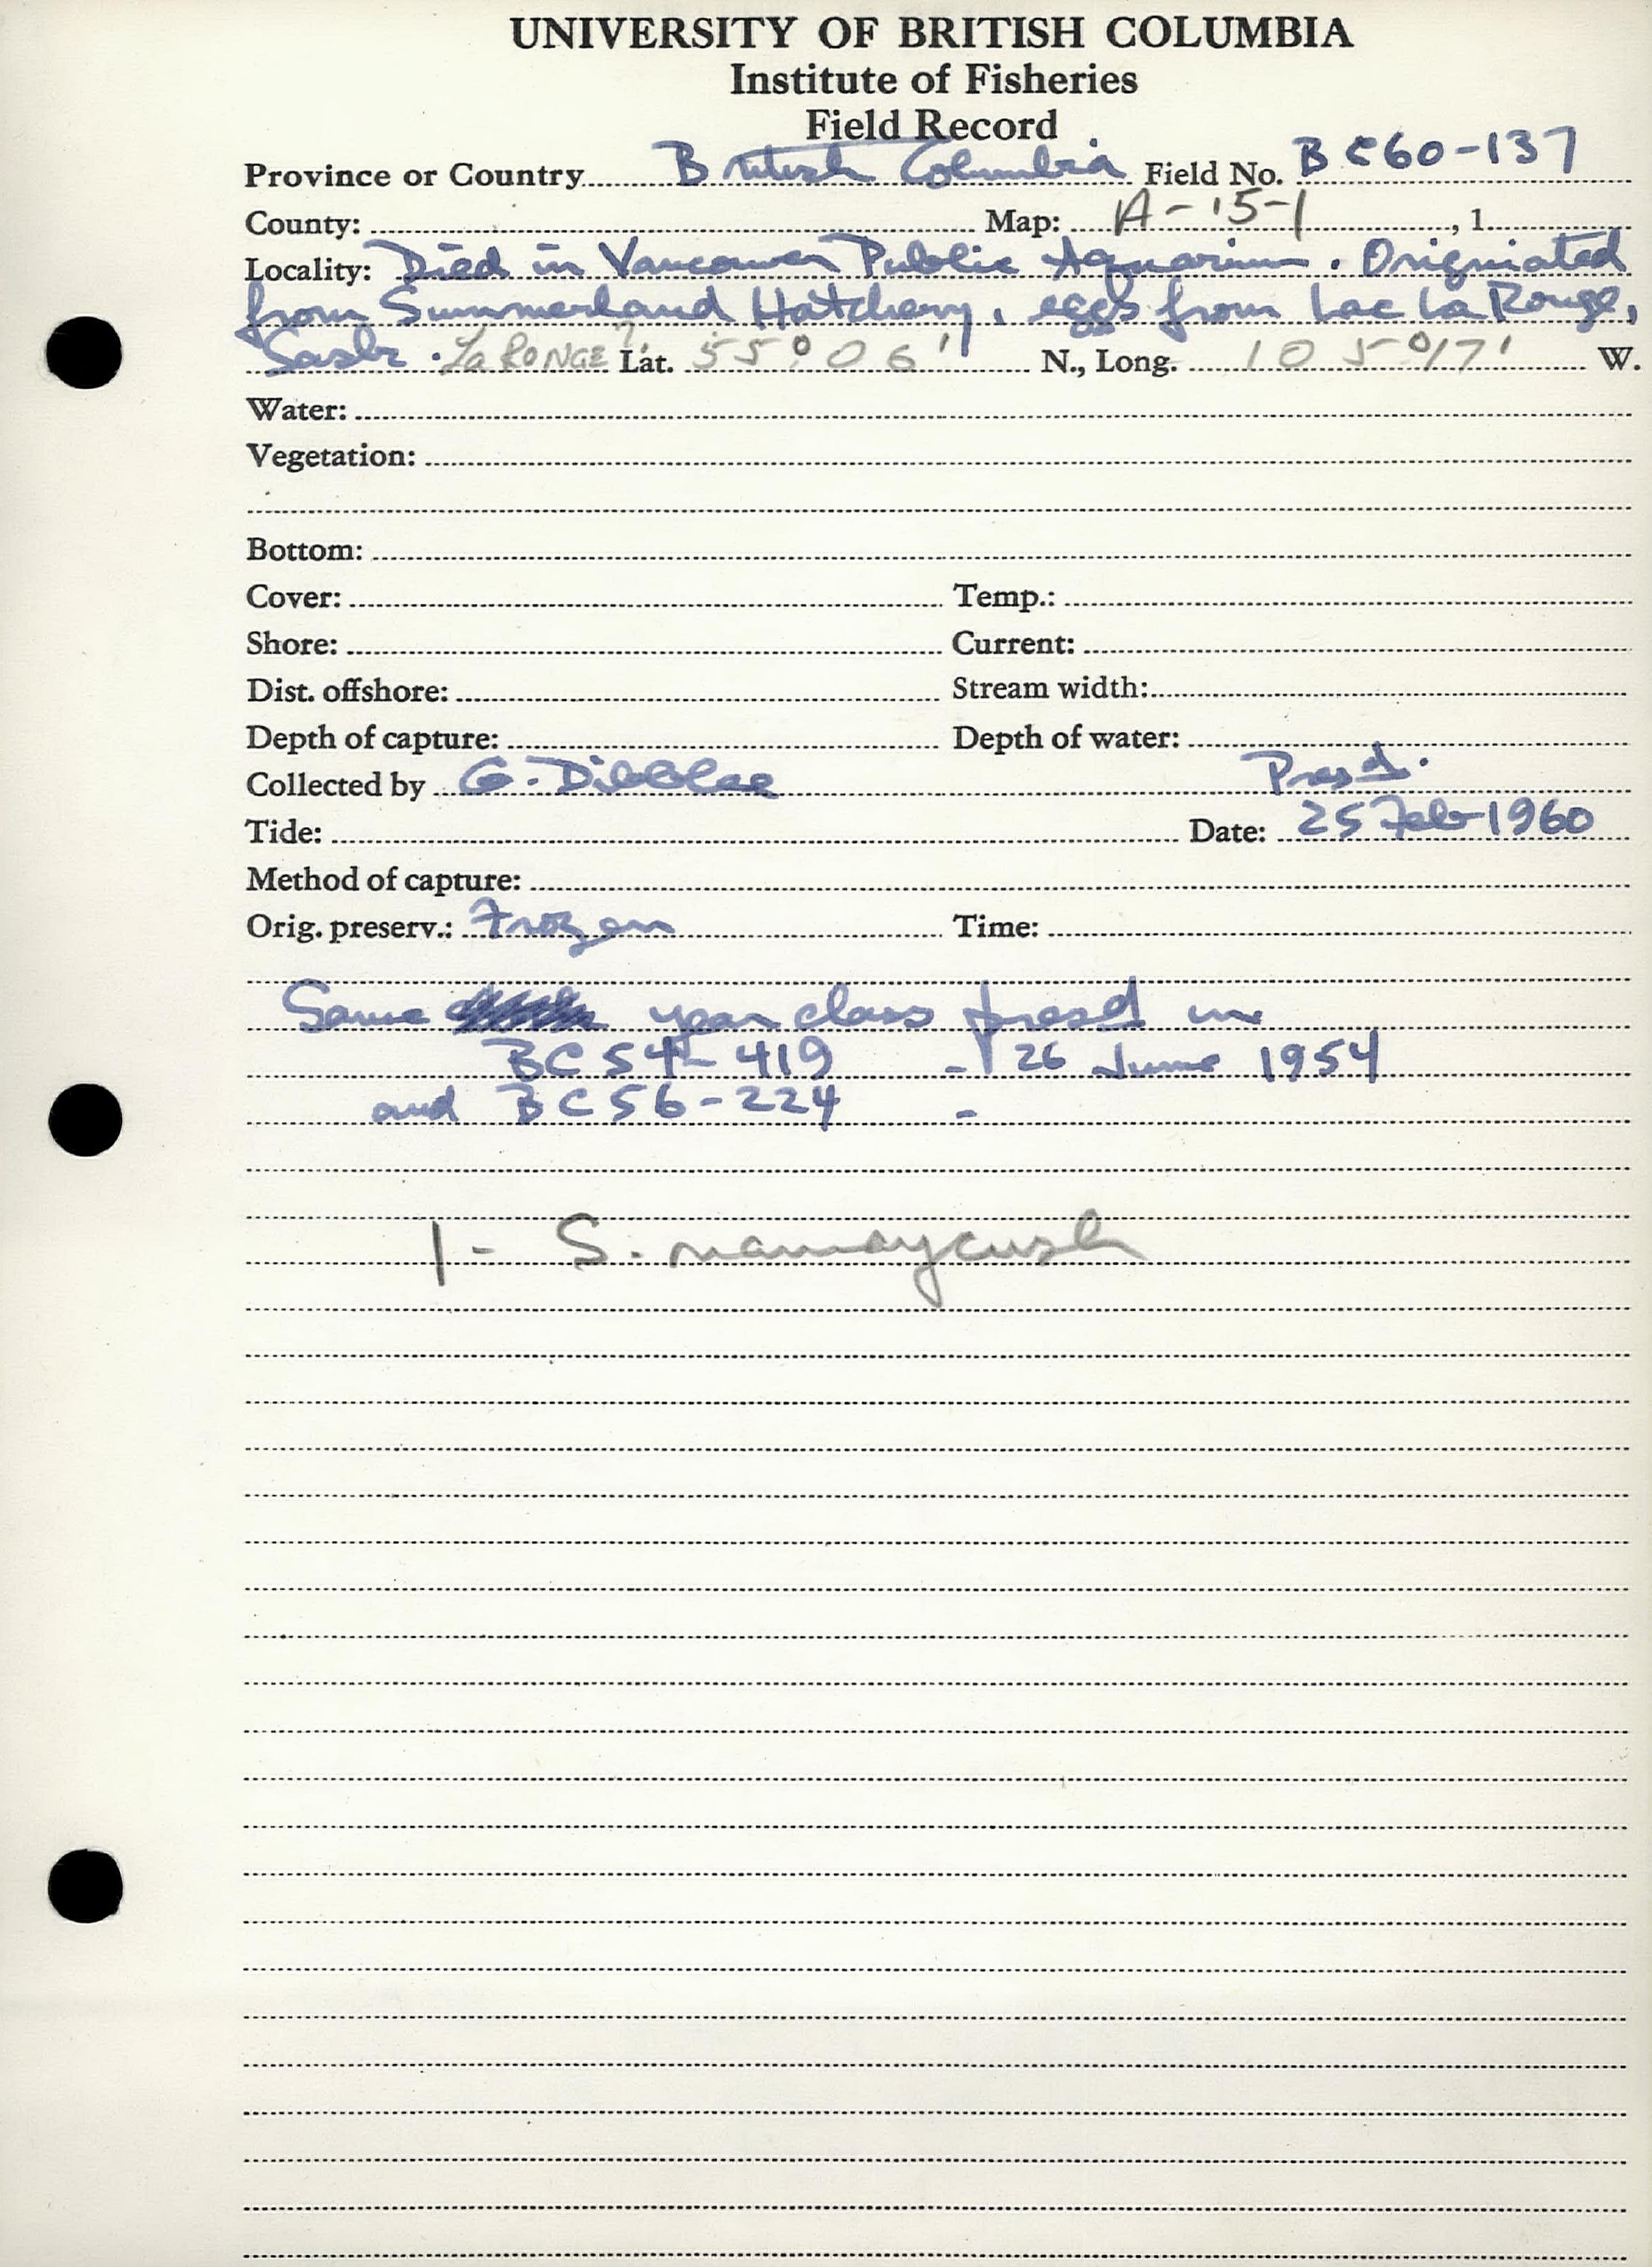 UNIVERSITY OF BRITISH COLUMBIA
Institute of Fisheries
Field Record
Province or Country British Columbia Field No. BC60-137
County: Map: A-15-1, 1
Locality: Died in Vancouver Public Aquarium. Origniated
from Summerland Hatchery, eggs from Lac La Rouge,
Sask. La RONGE? Lat. 55° 06' N., Long. 105° 17' W.
Water:
Vegetation:
Bottom:
Cover: Temp.:
Shore: Current:
Dist. offshore: Stream width:
Depth of capture: Depth of water:
Collected by G. Dibblee Presd.
Tide: Date: 25 Feb 1960
Method of capture:
Orig. preserv.: Frozen Time:
Same year class presd in
BC54-419 - 26 June 1954
and BC56-224 -
1- S. namaycush